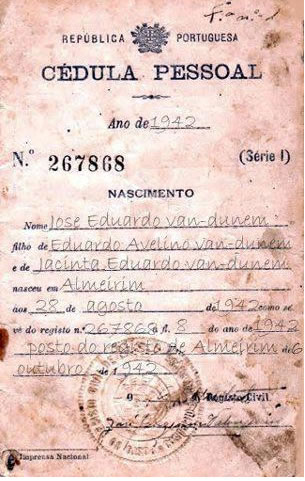 REPÚBLICA PORTUGUESA
CÉDULA PESSOAL
Ano de 1942
N.º 267868 (Série I)
NASCIMENTO
Nome Jose Eduardo van-dunem
filho de Eduardo Avelino van-dunem
e de Jacinta Eduardo van-dunem
nasceu em Almeirim
aos 28 de agosto de 1942 como se
vê do registo n.º 267868 a fl. 8 do ano de 1942
posto do registo de Almeirim de 6
outubro de 1942
O Registo Civil.
Imprensa Nacional